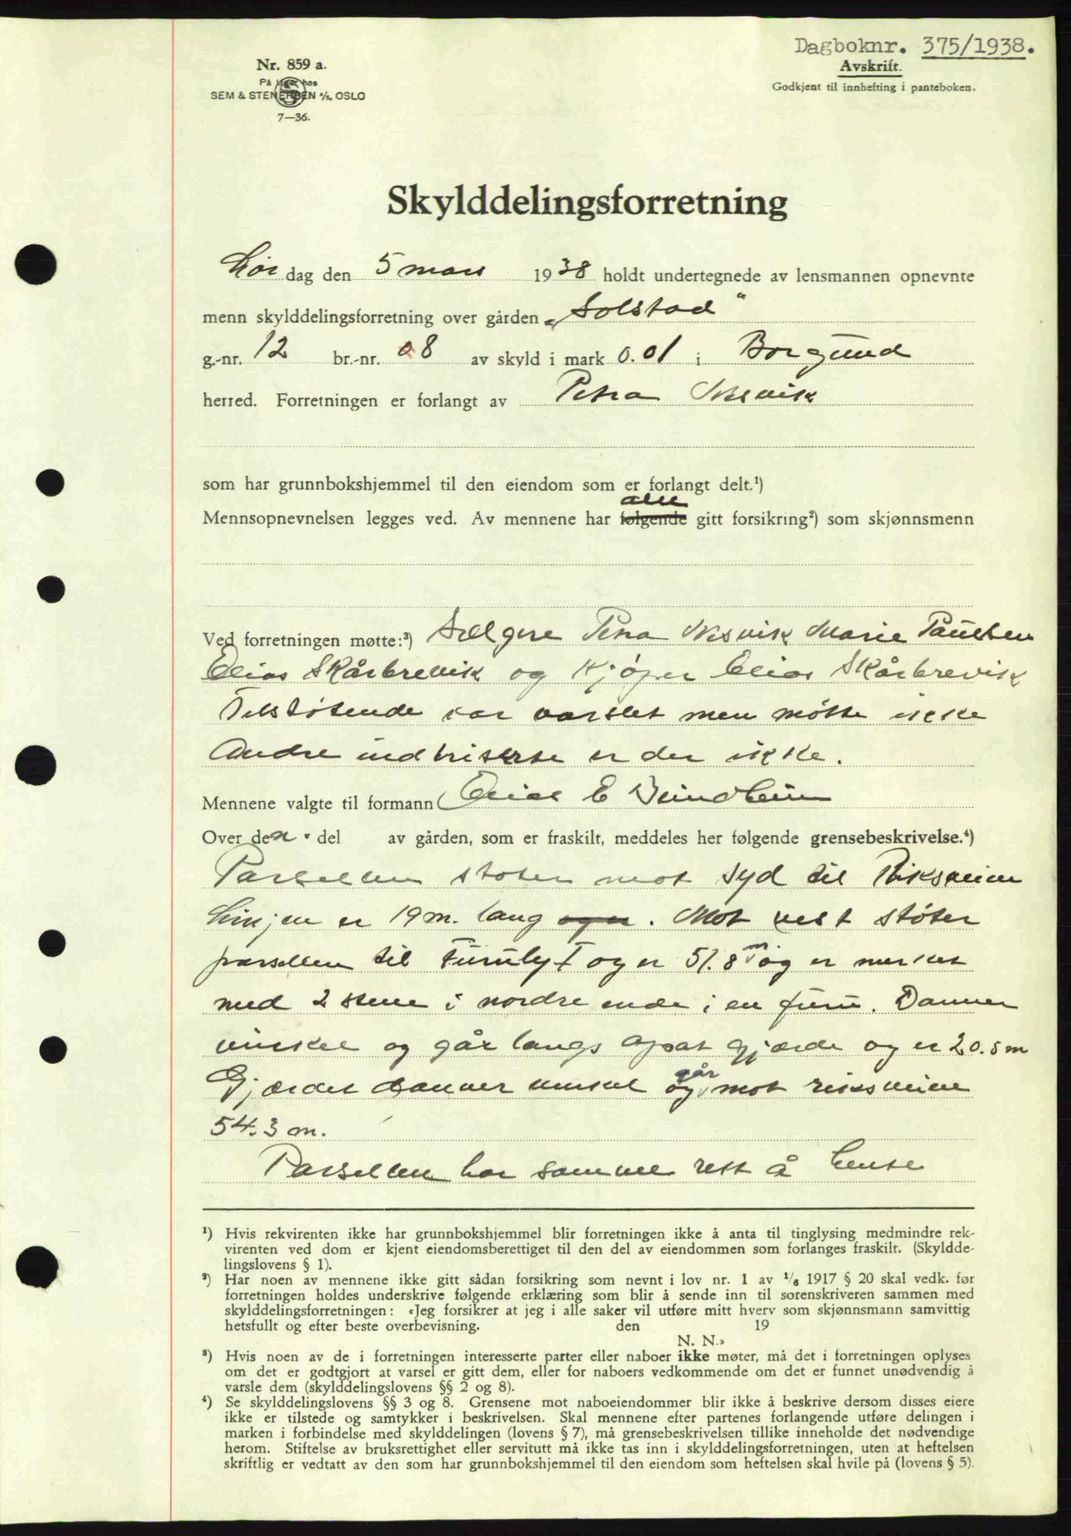 Dagboknr. 375/1938.
Avskrift.
Godkjent til innhefting i panteboken.
Nr. 859 a.
På lager hos
SEM & STENERSEN A/S, OSLO
7—36.
Skylddelingsforretning
Lør dag den 5 mars 1938 holdt undertegnede av lensmannen opnevnte
menn skylddelingsforretning over gården „Solstad“
g.-nr. 12 br.-nr. 8 av skyld i mark 0.01 i Borgund
herred. Forretningen er forlangt av Petra Nesvik
som har grunnbokshjemmel til den eiendom som er forlangt delt.¹)
alle
Mennsopnevnelsen legges ved. Av mennene har følgende gitt forsikring²) som skjønnsmenn
Ved forretningen møtte:³) Selgere Petra Nesvik Marie Paulsen
Elias Skårbrevik og kjøper Elias Skårbrevik
Tilstøtende var varslet men møtte ikke
Andre indtriserte er der ikke.
Mennene valgte til formann E
Over den del av gården, som er fraskilt, meddeles her følgende grensebeskrivelse.⁴)
Parsellen støter mot syd til Riksveien
Linjen er 19 m. lang og er. Mot vest støter
parsellen til Furuly I og er 51.8 m og er merket
med 2 stene i nordre ende i en furu. Danner
vinkel og går langs opsat gjærde og er 20.5 m
Gjærdet danner vinkel og går mot riksveien
54.3 m.
Parsellen har samme rett å hente
¹) Hvis rekvirenten ikke har grunnbokshjemmel blir forretningen ikke å anta til tinglysing medmindre rek-
virenten ved dom er kjent eiendomsberettiget til den del av eiendommen som forlanges fraskilt. (Skyldde-
lingslovens § 1).
²) Har noen av mennene ikke gitt sådan forsikring som nevnt i lov nr. 1 av 1/6 1917 § 20 skal vedk. før
forretningen holdes underskrive følgende erklæring som blir å sende inn til sorenskriveren sammen med
skylddelingsforretningen: «Jeg forsikrer at jeg i alle saker vil utføre mitt hverv som skjønnsmann samvittig
hetsfullt og efter beste overbevisning. den 19
N. N.»
³) Hvis noen av de i forretningen interesserte parter eller naboer ikke møter, må det i forretningen oplyses
om det er godtgjort at varsel er gitt dem, eller for naboers vedkommende om det er funnet unødvendig å
varsle dem (skylddelingslovens §§ 2 og 8).
⁴) Se skylddelingslovens §§ 3 og 8. Grensene mot naboeiendommer blir ikke å beskrive dersom disses eiere
ikke er tilstede og samtykker i beskrivelsen. Skal mennene efter partenes forlangende utføre delingen i
marken i forbindelse med skylddelingen (lovens § 7), må grensebeskrivelsen tillike inneholde det nødvendige
herom. Stiftelse av bruksrettighet eller servitutt må ikke tas inn i skylddelingsforretningen, uten at heftelsen
skriftlig er vedtatt av den som har grunnbokshjemmel til den eiendom som heftelsen skal hvile på (lovens § 5).